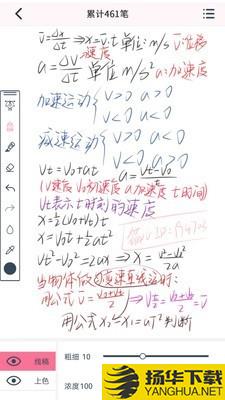 累计461笔
v̄=Δx/Δt ⇒ x=v̄t 单位: m/s v̄:位移
速度
a=Δv/Δt 单位 m/s² a:加速度
加速运动{ v>0 a>0
v<0 a<0
减速运动{ v>0 a<0
v<0 a>0
Vt=V₀+at a=(Vt-V₀)/t
(V速度 V₀初速度 a加速度 t时间)
Vt表示t时刻的速度
x=½(V₀+Vt)t
x=V₀t+½at²
Vt²-V₀²=2ax ⇒ x=(V²-V₀²)/2a
当物体做匀变速直线运动时:
用公式 v̄=(V₀+Vt)/2 ⇒ Vt/2=(V₀+Vt)/2=v̄
用公式 x₂-x₁=aT² 判断
线稿
粗细 10
上色
浓度100
扬华下载
YANGHUA.NET